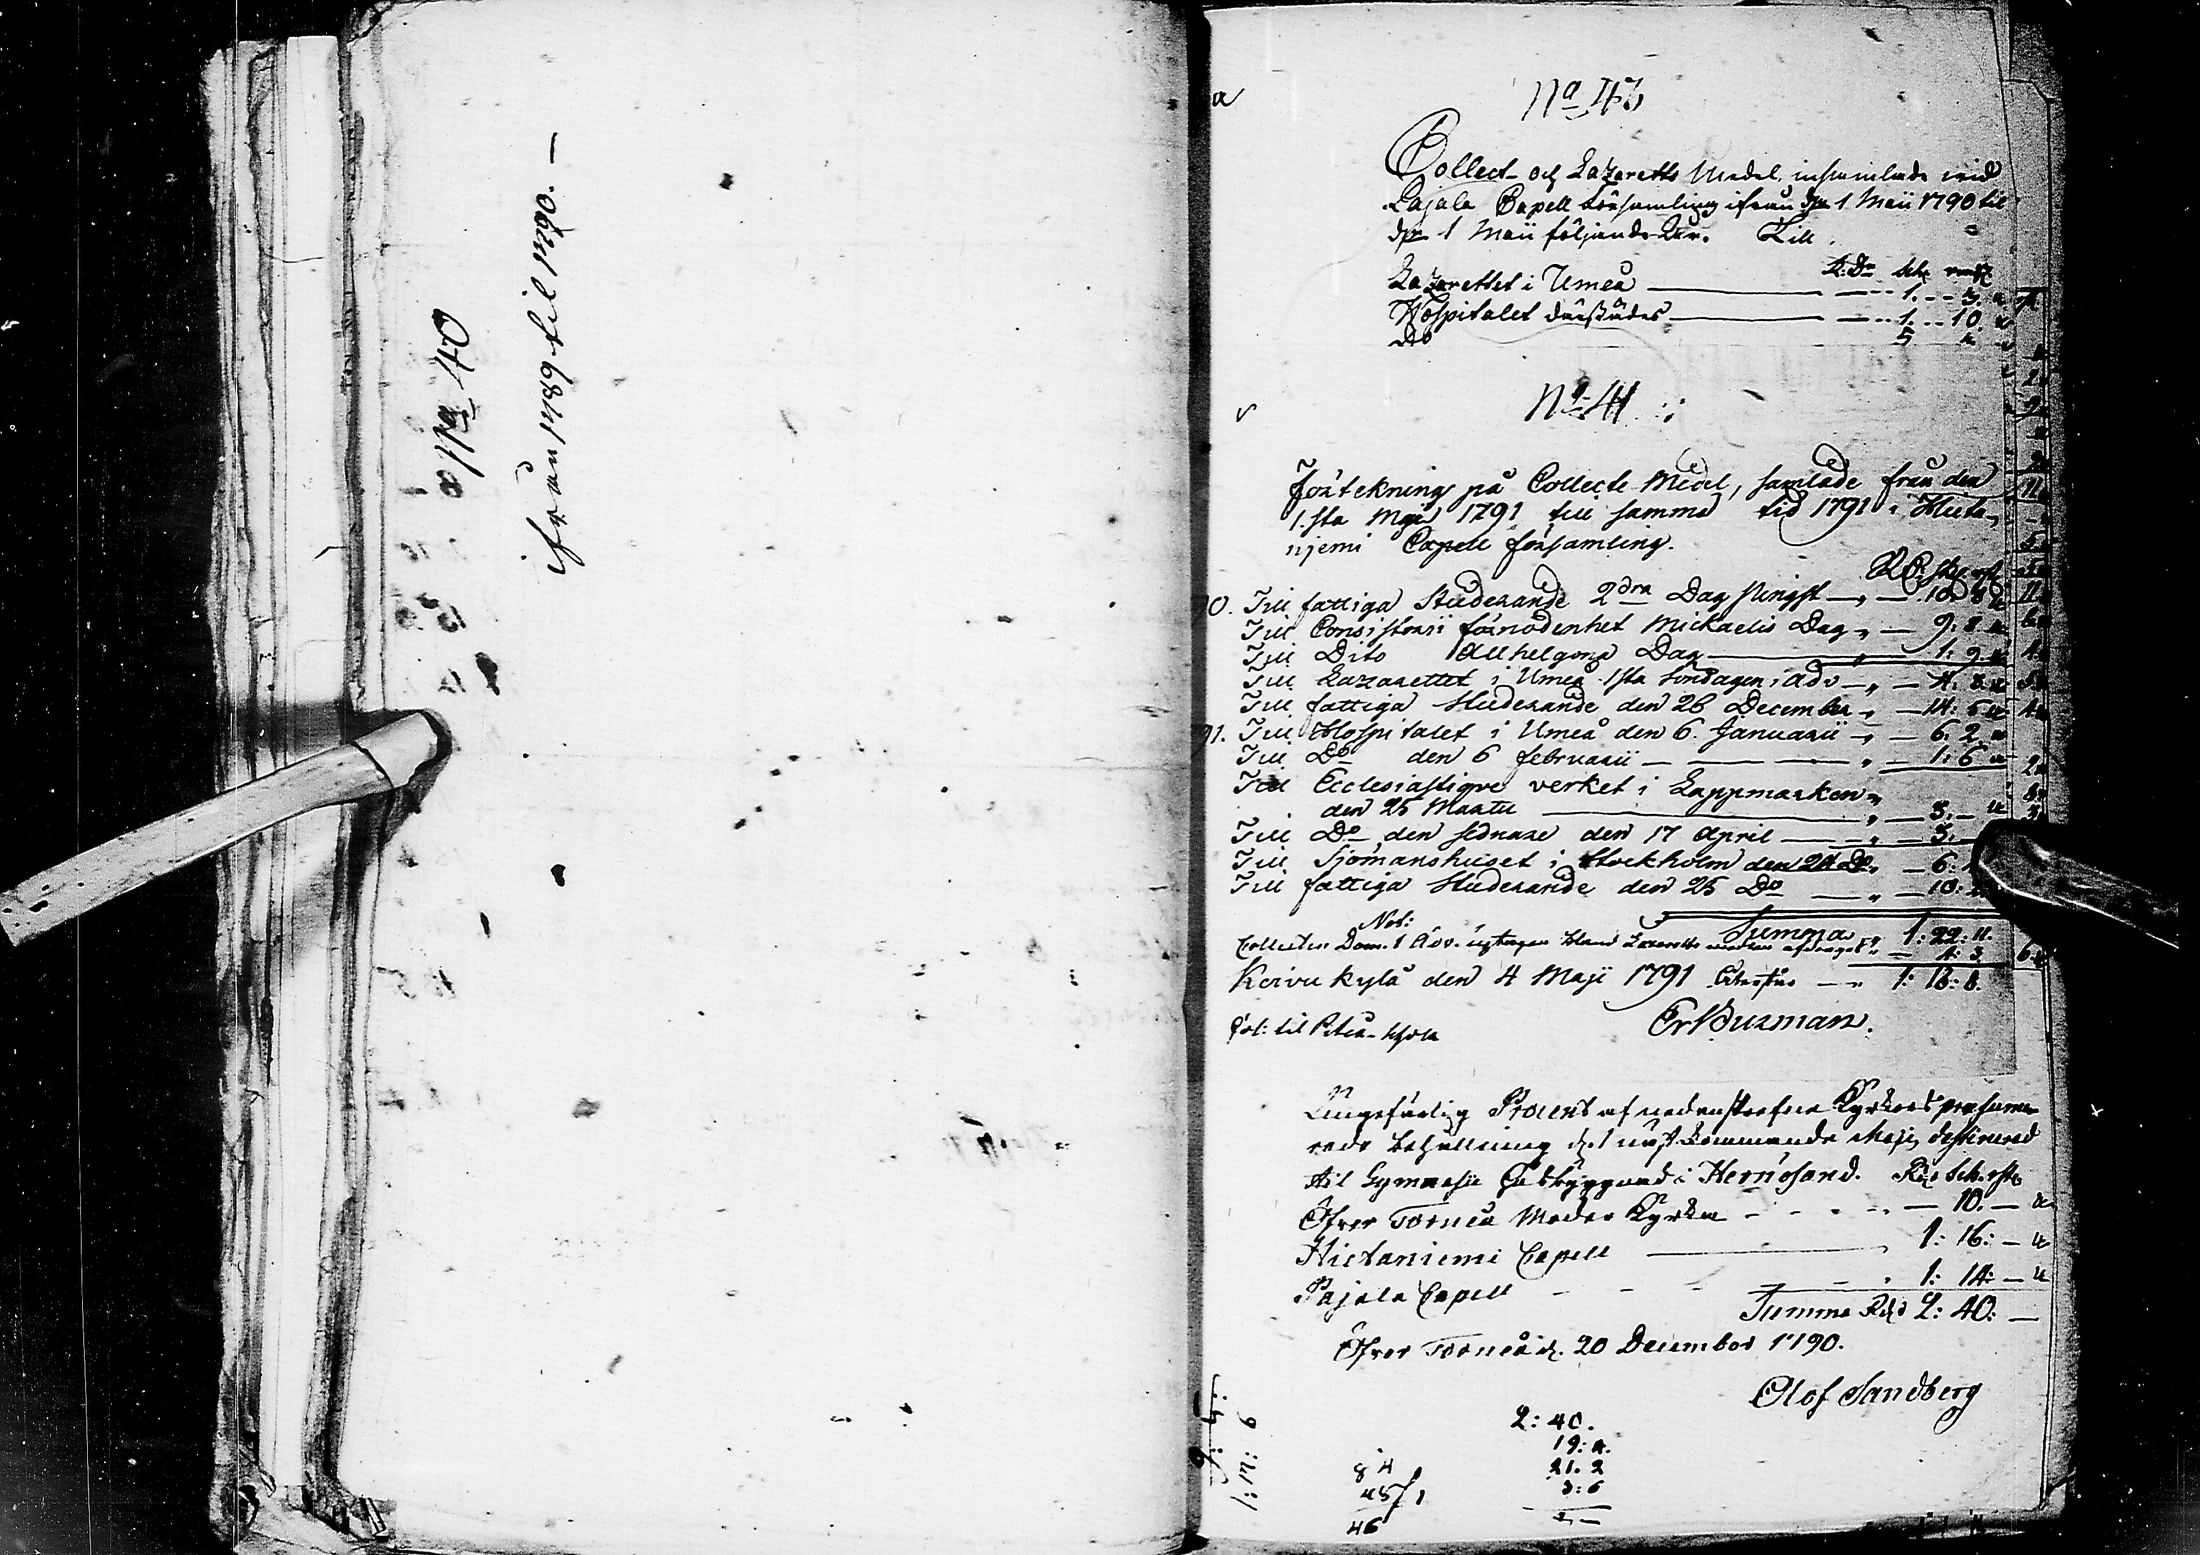 No 40
ifrån 1789 til 1790. —
No 43
Collect- och Lazaretts Medel, insamlade wid
Pajala Capell Församling ifrån den 1 Maii 1790 til
den 1 Maii följande Åhr. Till
R:Dr sch. rst.
Lazarettet i Umeå — 1. — 3.
Hospitalet därstädes — 1. — 10.
Do 5
No 41
Förtekning på Collecte Medel, samlade från den
1.sta Maji 1791 till samma tid 1791 i Hieta-
njemi Capell församling.
90. Till fattiga Studerande 2dra Dag Pingst — 10: 8
Till Consistorii förnödenhet Mickaelis Dag — 9: 8
Till Dito Allhelgona Dag — 1: 9
Till Lazarettet i Umeå 1sta söndagen i Adv — 4: 3
Till fattiga Studerande den 26 December — 14: 5
91. Till Hospitalet i Umeå den 6. Januarii — 6: 2
Till Do den 6 Februarii — 1: 6
Till Ecclesiastique verket i Lappmarken
den 25 Martii — 3. —
Till Do den sednare den 17 April — 3. —
Till Sjömanshuset i Stockholm den 24 Do — 6:
Till fattiga Studerande den 25 Do — 10:
Summa 1: 22: 11.
Not:
Collecten Dom. 1 Adv. — 4: 3.
Koivukylä den 4 Maji 1791 — 1: 18: 8.
Er Burman.
Col: til Piteå
Ungefärlig Procent af nedanskrefne Kyrkors præsume-
rade behållning d. 1 nästkommande Maji, destinerad
til Gymnasii Gebyggnad i Hernösand. Rd Sch. rst.
Öfver Torneå Moder Kyrka — 10. —
Hietaniemi Capell — 1: 16: —
Pajala Capell — 1: 14: —
Summa Rd 2: 40: —
Öfver Torneå d. 20 December 1790.
Olof Sandberg
2: 40.
19: 4.
21. 2
3: 6
84
45/1
46